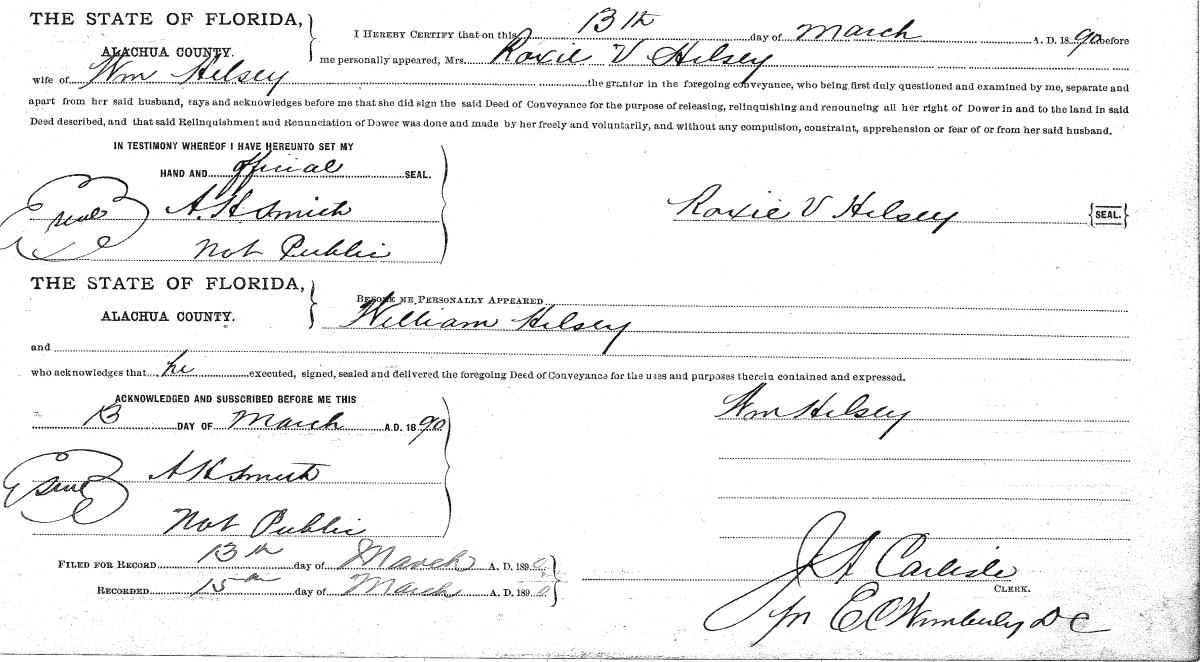 THE STATE OF FLORIDA,
ALACHUA COUNTY.
I HEREBY CERTIFY that on this 13th day of March A. D. 1890 before
me personally appeared, Mrs. Roxie V Hilsey
wife of Wm Hilsey the grantor in the foregoing conveyance, who being first duly questioned and examined by me, separate and
apart from her said husband, says and acknowledges before me that she did sign the said Deed of Conveyance for the purpose of releasing, relinquishing and renouncing all her right of Dower in and to the land in said
Deed described, and that said Relinquishment and Renunciation of Dower was done and made by her freely and voluntarily, and without any compulsion, constraint, apprehension or fear of or from her said husband.
IN TESTIMONY WHEREOF I HAVE HEREUNTO SET MY
HAND AND official SEAL.
seal A. H Smith
Not Public
Roxie V Hilsey {SEAL.}
THE STATE OF FLORIDA,
ALACHUA COUNTY.
BEFORE ME PERSONALLY APPEARED
William Hilsey
and
who acknowledges that he executed, signed, sealed and delivered the foregoing Deed of Conveyance for the uses and purposes therein contained and expressed.
ACKNOWLEDGED AND SUBSCRIBED BEFORE ME THIS
13 DAY OF March A.D. 1890
Wm Hilsey
seal A H Smith
Not Public
FILED FOR RECORD 13th day of March A. D. 1890
RECORDED 15th day of March A. D. 1890
J A Carlisle
CLERK.
pr E C Wimberly D C